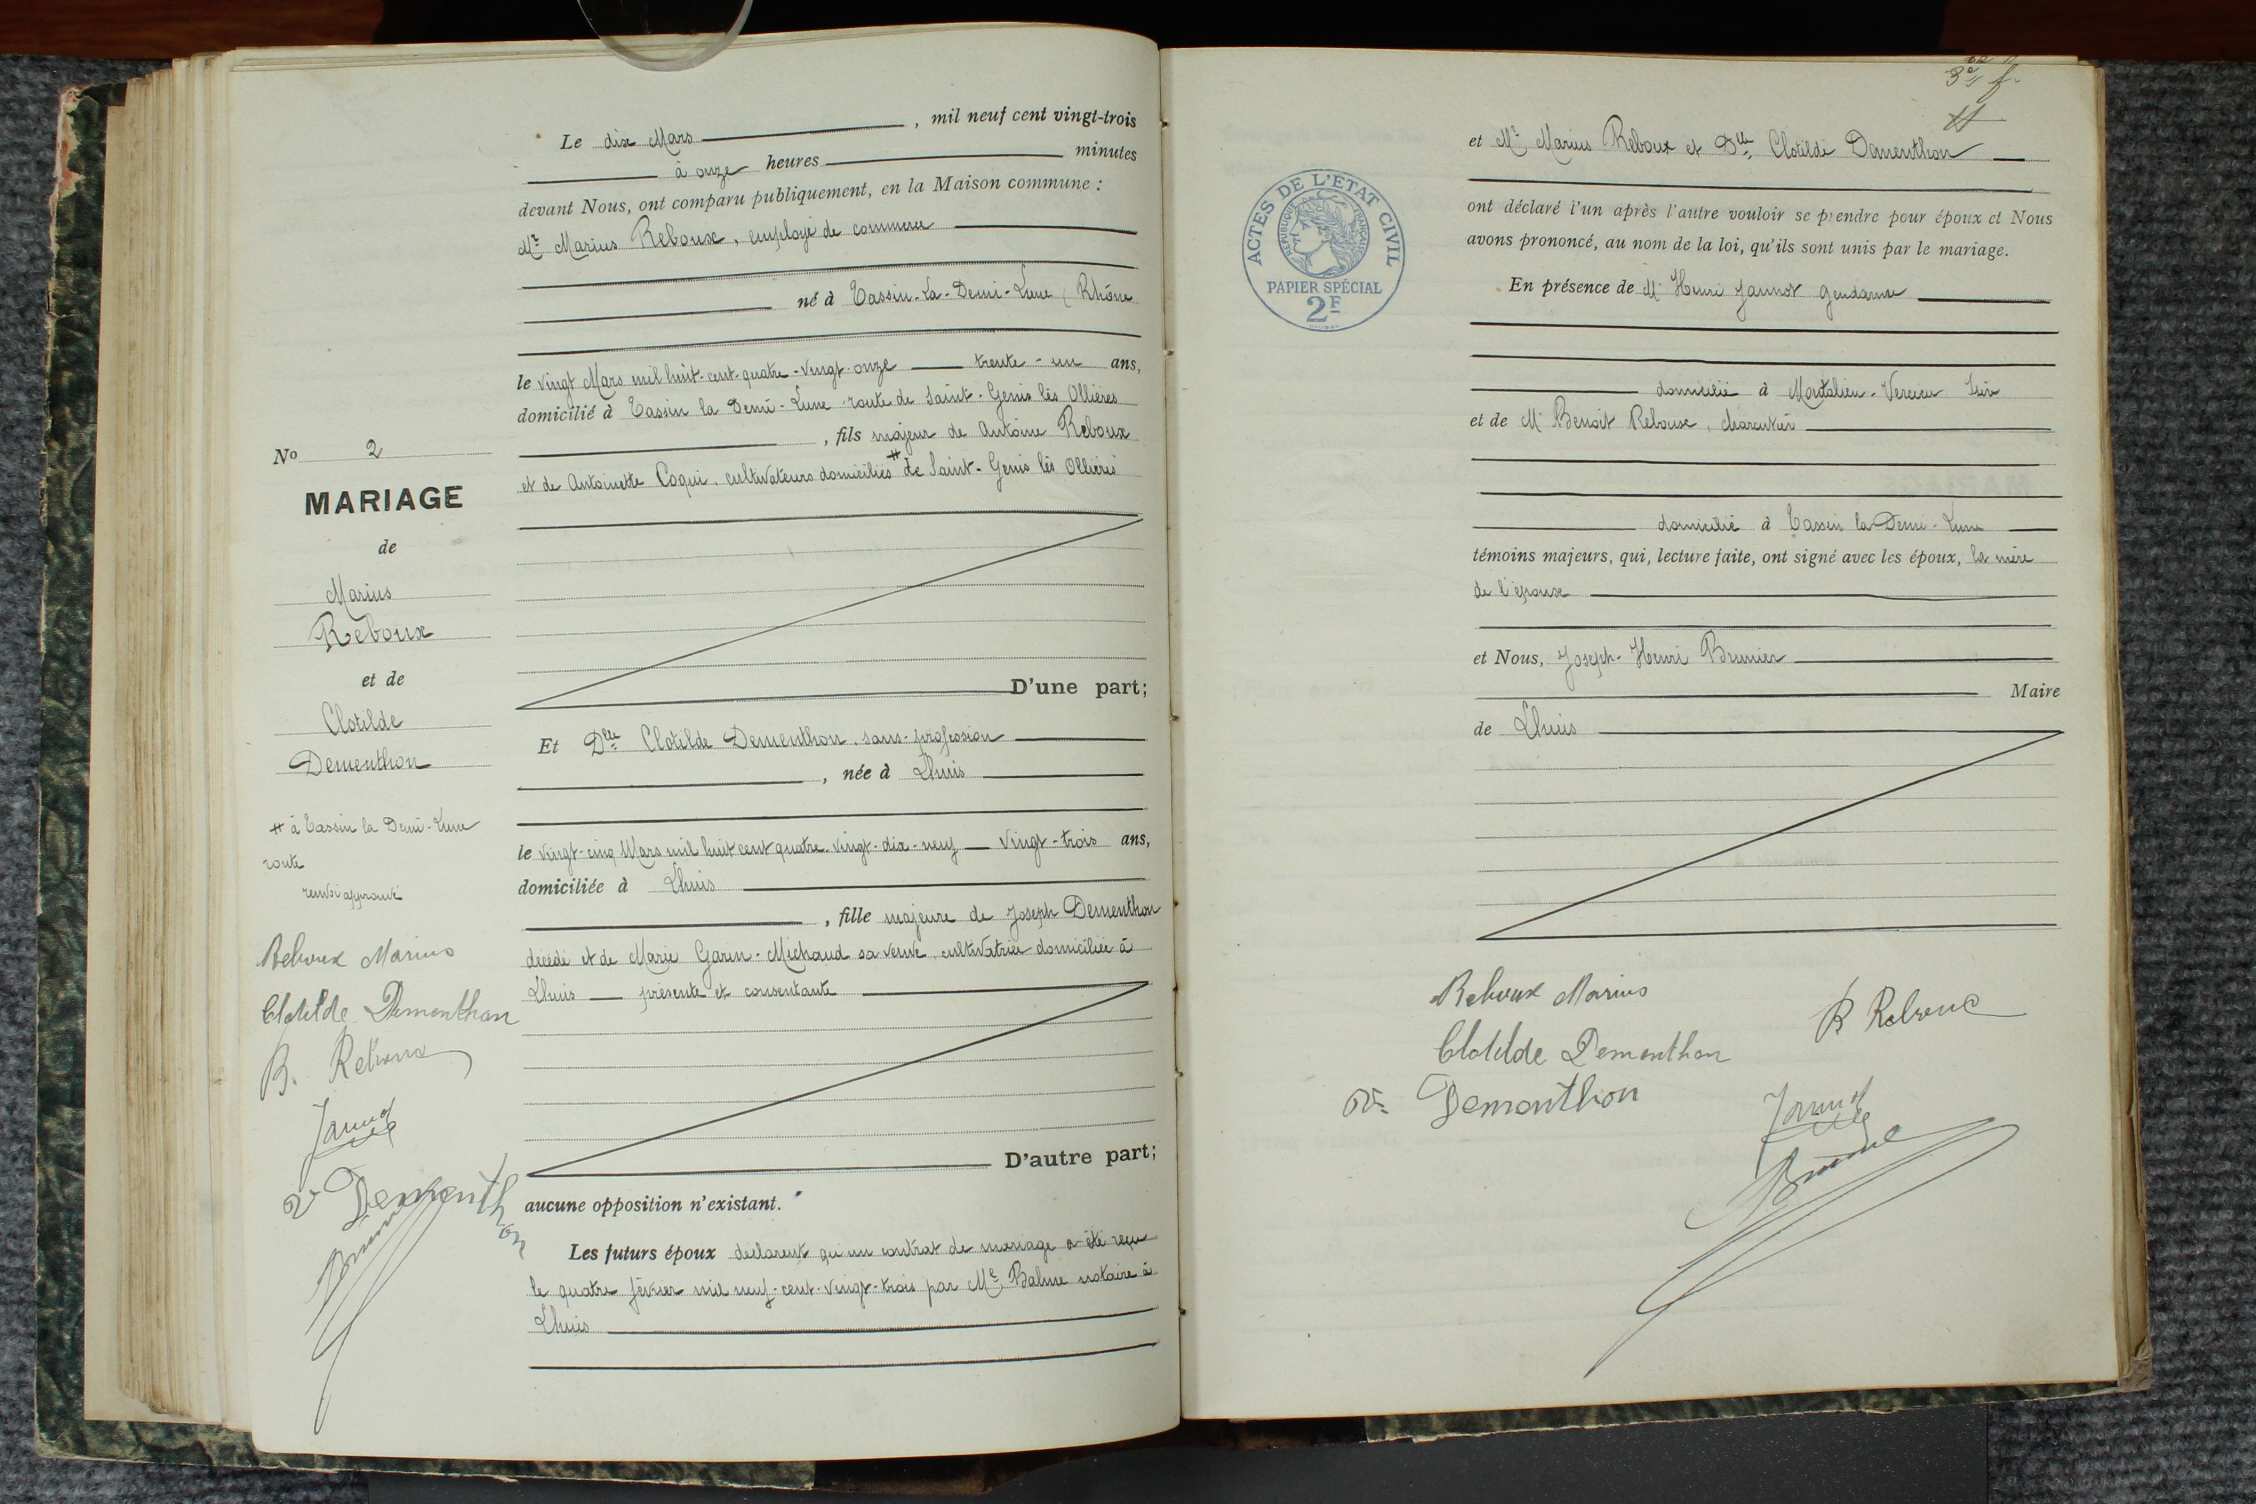 Le dix Mars, mil neuf cent vingt-trois
à onze heures minutes
devant Nous, ont comparu publiquement, en la Maison commune :
Mr Marius Reboux, employé de commerce
né à Tassin-La-Demi-Lune (Rhône
le vingt Mars mil huit-cent-quatre-vingt-onze trente-un ans,
domicilié à Tassin la Demi-Lune route de Saint-Genis lès Ollières
, fils majeur de Antoine Reboux
et de Antoinette Coqui, cultivateurs domiciliés # de Saint-Genis lès Ollières
D'une part;
Et Dlle Clotilde Dementhon, sans-profession
, née à Lhuis
le vingt-cinq Mars mil huit cent quatre-vingt-dix-neuf vingt-trois ans,
domiciliée à Lhuis
, fille majeure de Joseph Dementhon
décédé et de Marie Garin-Michaud sa veuve, cultivatrice domiciliée à
Lhuis présente et consentante
D'autre part;
aucune opposition n'existant.
Les futurs époux déclarent qu'un contrat de mariage a été reçu
le quatre février mil neuf-cent-vingt-trois par Me Balme notaire à
Lhuis
No 2
MARIAGE
de
Marius
Reboux
et de
Clotilde
Dementhon
# à Tassin la Demi-Lune
route
renvoi approuvé
Reboux Marius
Clotilde Dementhon
B. Reboux
Jannot
Ve Dementhon
Brunier
et Mr Marius Reboux et Dlle Clotilde Dementhon
ACTES DE L'ETAT CIVIL
REPUBLIQUE FRANÇAISE
PAPIER SPÉCIAL
2F
ont déclaré l'un après l'autre vouloir se prendre pour époux et Nous
avons prononcé, au nom de la loi, qu'ils sont unis par le mariage.
En présence de Mr Henri Jannot gendarme
domicilié à Montalieu-Vercieu Isère
et de Mr Benoît Reboux, charcutier
domicilié à Tassin la Demi-Lune
témoins majeurs, qui, lecture faite, ont signé avec les époux, la mère
de l'épouse
et Nous, Joseph-Henri Brunier
Maire
de Lhuis
Reboux Marius
B Reboux
Clotilde Dementhon
Ve Dementhon
Jannot
Brunier